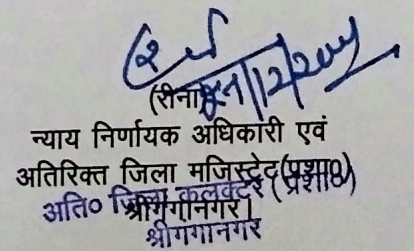 (रीना
न्याय निर्णायक अधिकारी एवं
अतिरिक्त जिला मजिस्ट्रेट (प्रशा०)
अति० जिला कलक्टर (प्रशा०)
श्रीगंगानगर।
श्रीगंगानगर